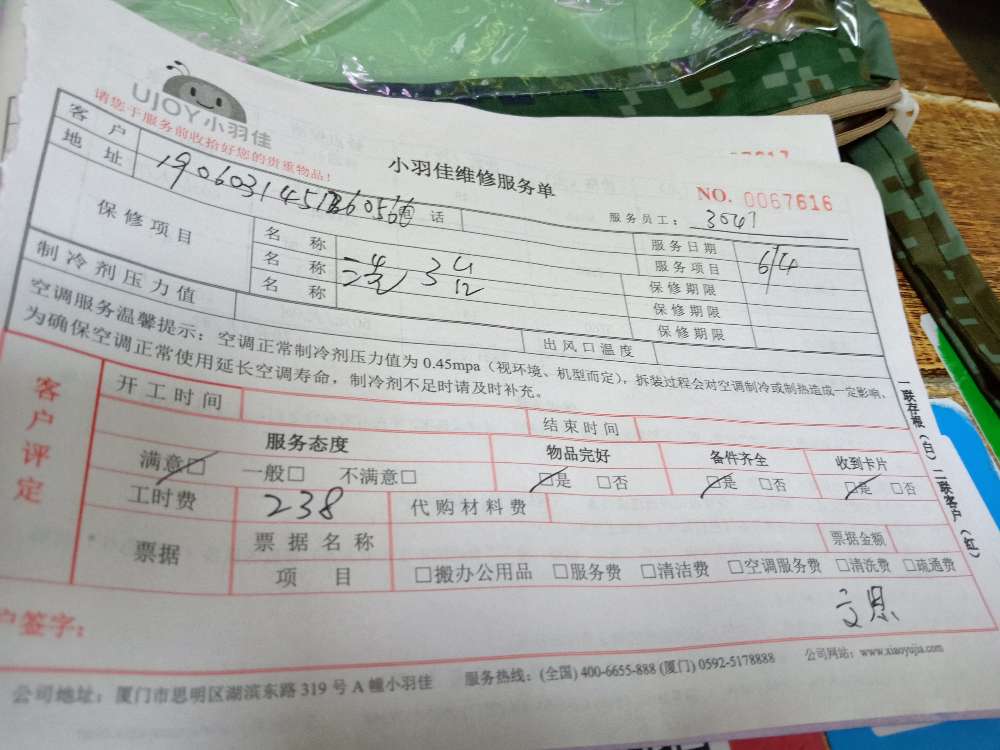 UJOY小羽佳
请您于服务前收拾好您的贵重物品!
小羽佳维修服务单
NO. 0067616
服务员工: 3041
客户
地址
电话
服务日期 6/4
服务项目
保修项目
名称
保修期限
名称
保修期限
名称
保修期限
制冷剂压力值
出风口温度
空调服务温馨提示:空调正常制冷剂压力值为0.45mpa(视环境、机型而定),拆装过程会对空调制冷或制热造成一定影响,
为确保空调正常使用延长空调寿命,制冷剂不足时请及时补充。
客户评定
开工时间
结束时间
服务态度
物品完好
备件齐全
收到卡片
满意□ 一般□ 不满意□
□是 □否
□是 □否
□是 □否
工时费 238
代购材料费
票据
票据名称
票据金额
项目
□搬办公用品 □服务费 □清洁费 □空调服务费 □清洗费 □疏通费
户签字:
公司地址:厦门市思明区湖滨东路319号A幢小羽佳
服务热线:(全国)400-6655-888 (厦门) 0592-5178888
公司网站:www.xiaoyujia.com
一联存根(白) 二联客户(红)